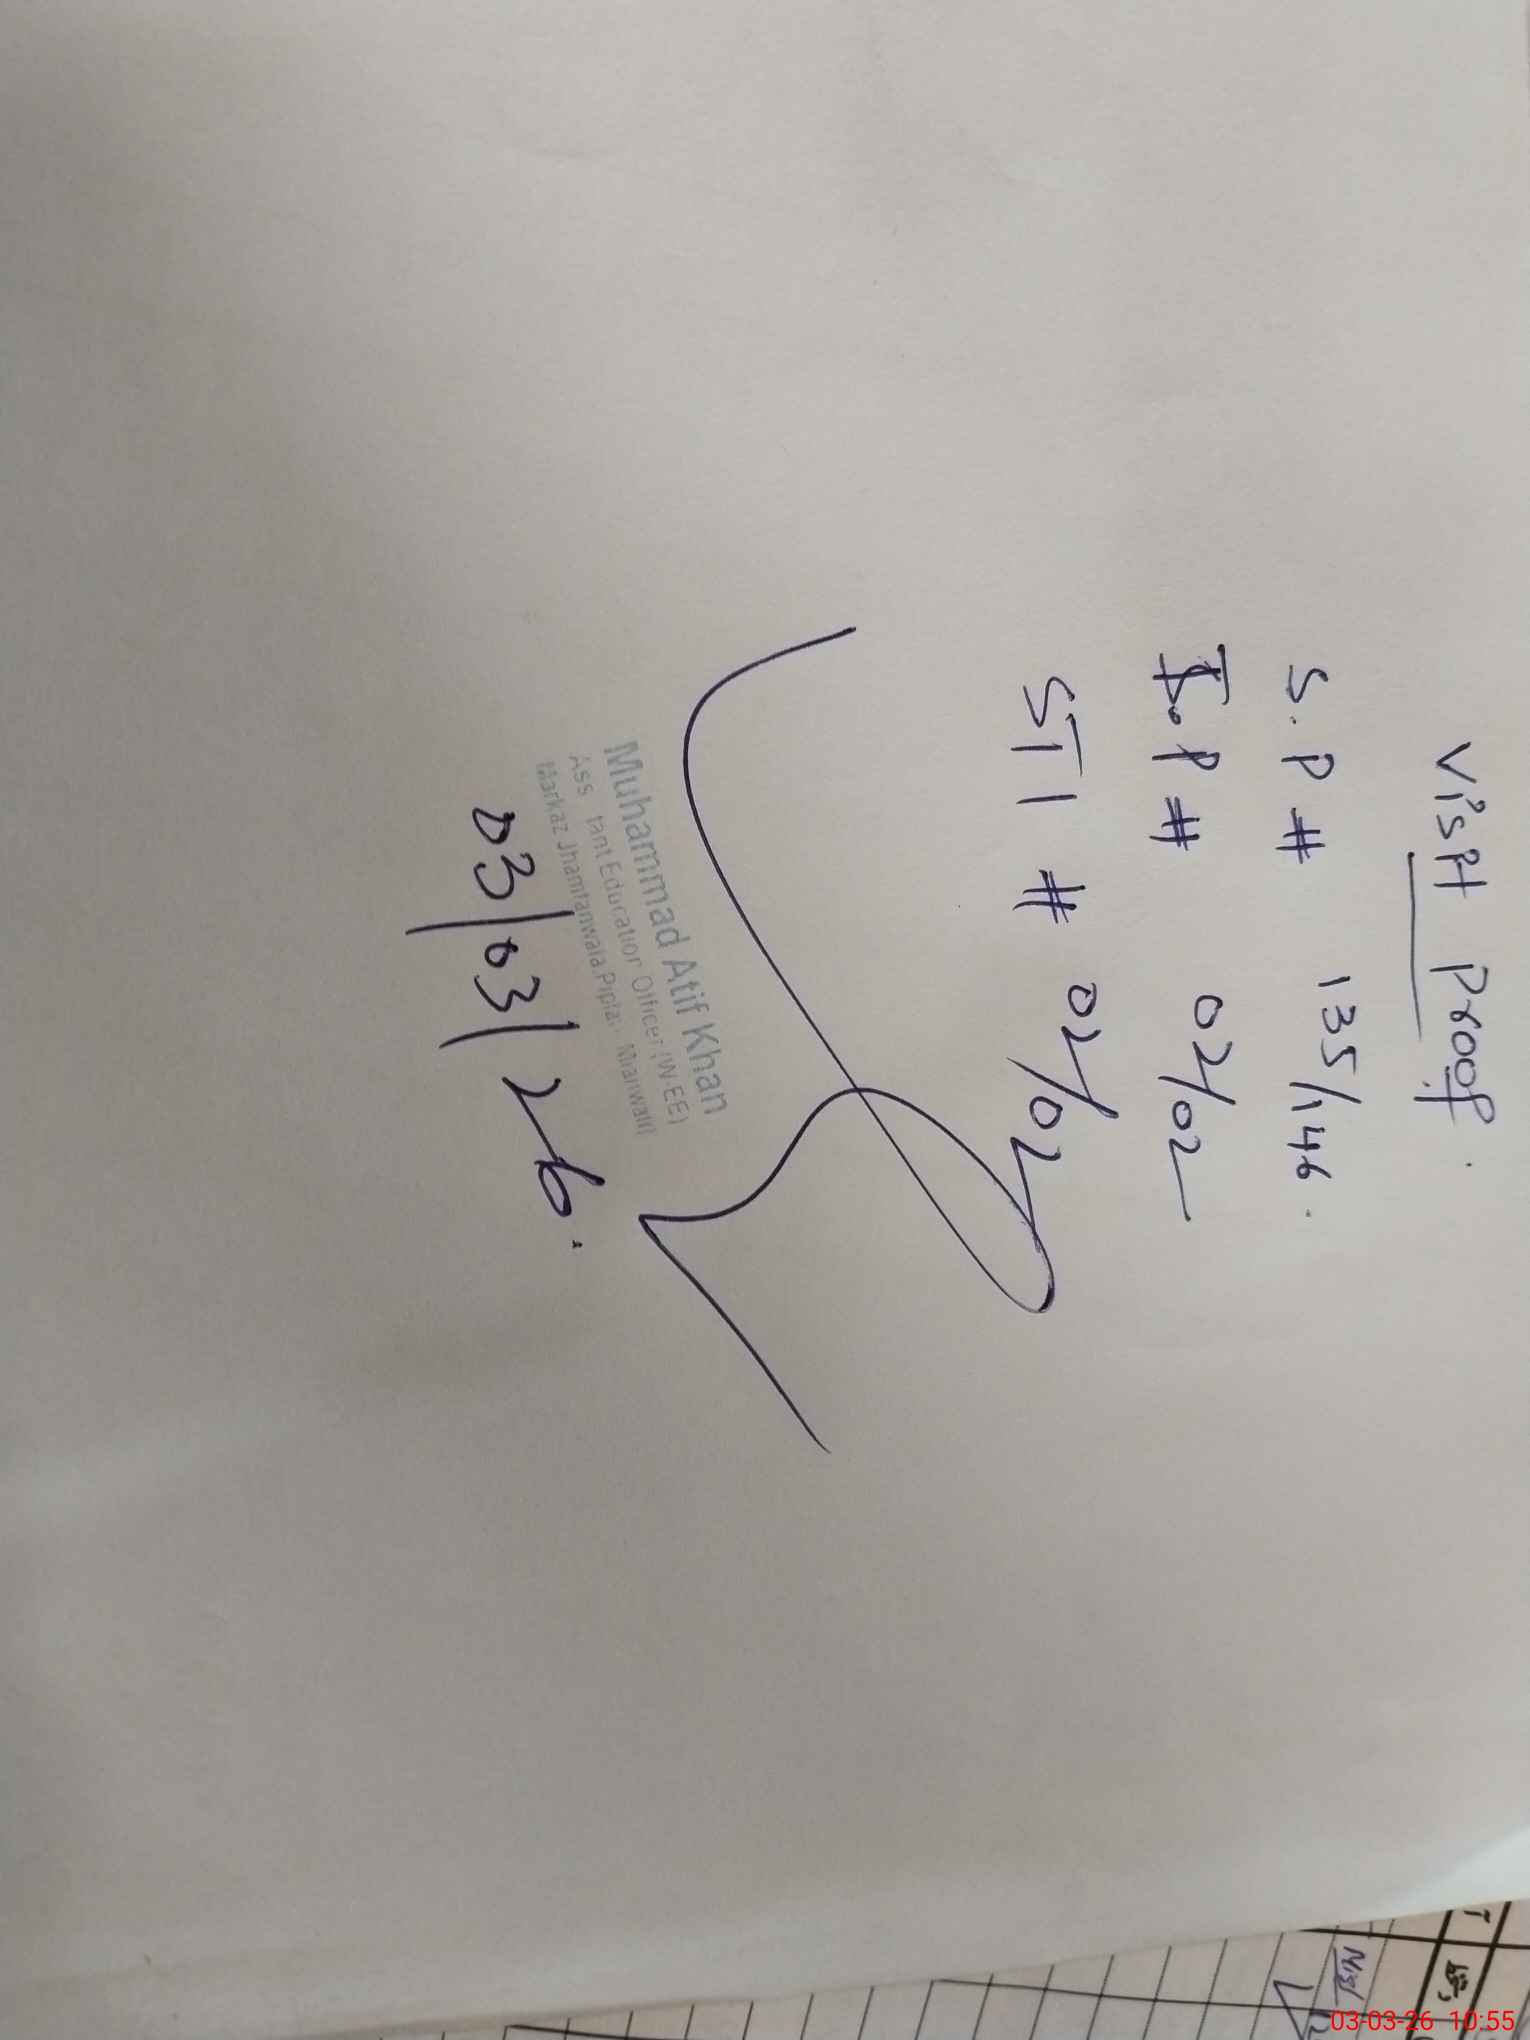 Visit Proof.
S.P # 135/146.
I.P # 02/02
STI # 02/02
Muhammad Atif Khan
Ass tant Education Officer (W-EE)
Markaz Jhamranwala, Piplan Mianwali
03/03/26.
03-03-26 10:55